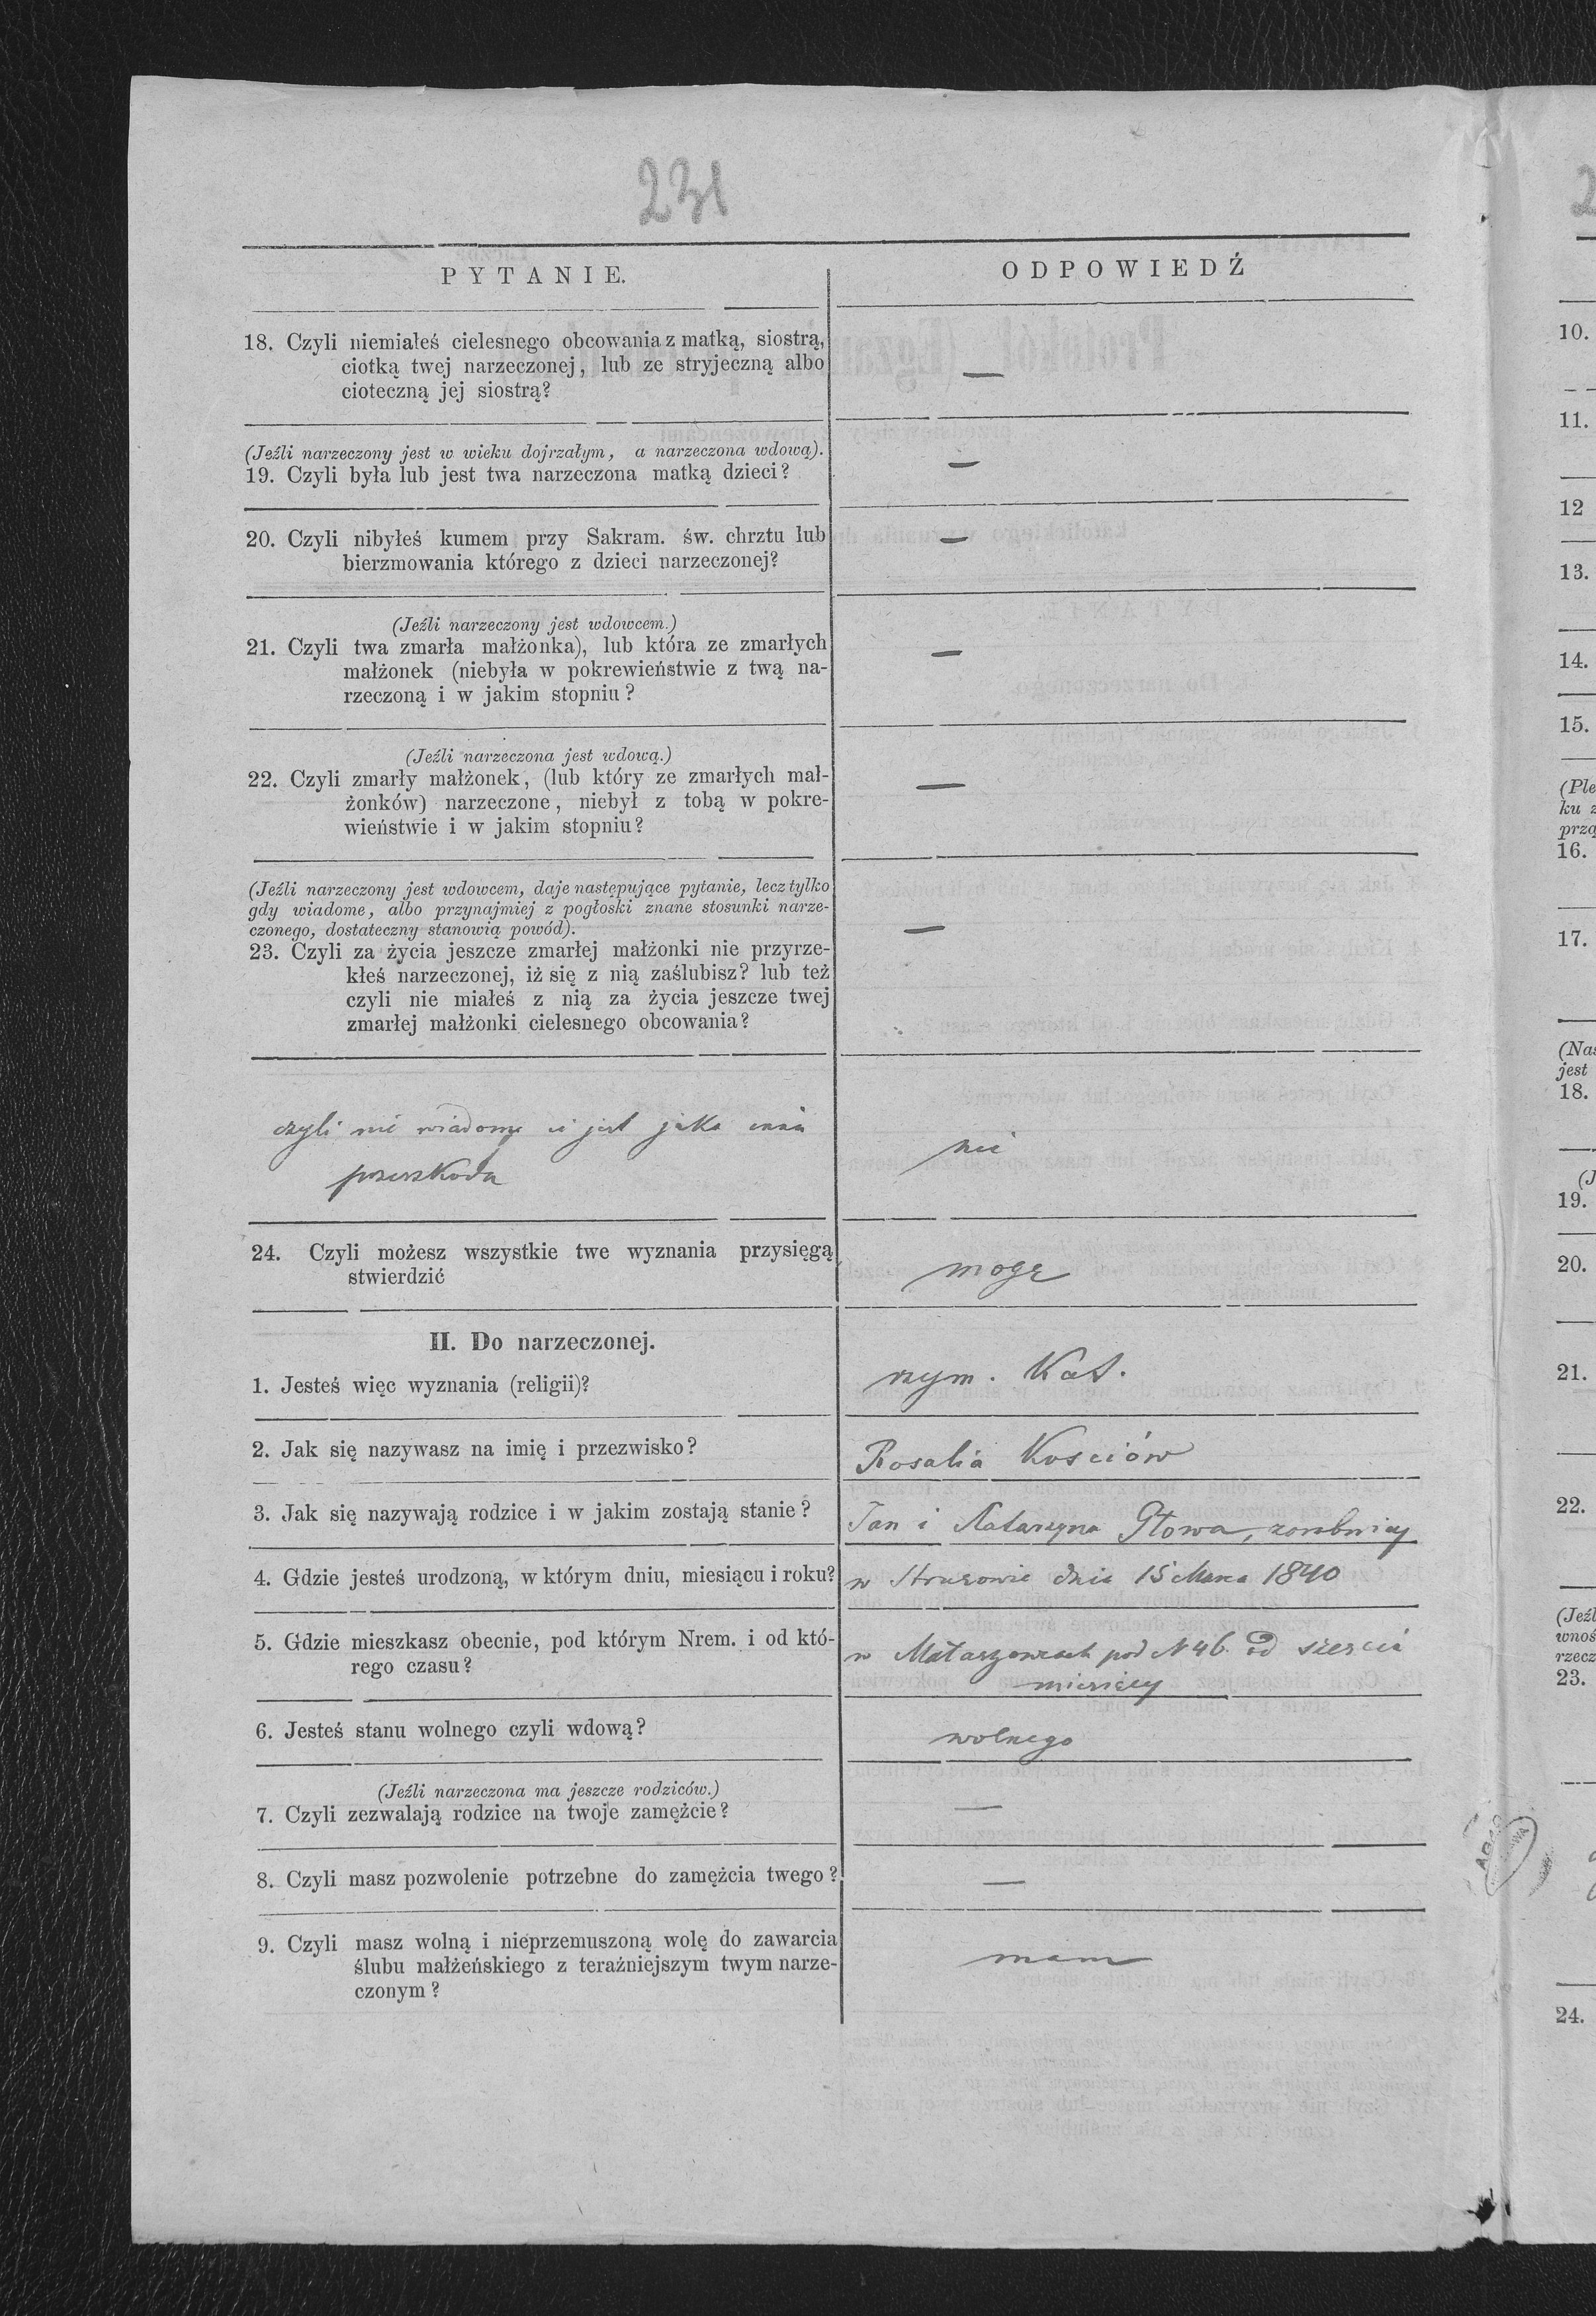 231
PYTANIE.
ODPOWIEDŹ
18. Czyli niemiałeś cielesnego obcowania z matką, siostrą,
ciotką twej narzeczonej, lub ze stryjeczną albo
cioteczną jej siostrą?
—
(Jeźli narzeczony jest w wieku dojrzałym, a narzeczona wdową).
19. Czyli była lub jest twa narzeczona matką dzieci?
—
20. Czyli nibyłeś kumem przy Sakram. św. chrztu lub
bierzmowania którego z dzieci narzeczonej?
—
(Jeźli narzeczony jest wdowcem.)
21. Czyli twa zmarła małżonka), lub która ze zmarłych
małżonek (niebyła w pokrewieństwie z twą na-
rzeczoną i w jakim stopniu?
—
(Jeźli narzeczona jest wdową.)
22. Czyli zmarły małżonek, (lub który ze zmarłych mał-
żonków) narzeczone, niebył z tobą w pokre-
wieństwie i w jakim stopniu?
—
(Jeźli narzeczony jest wdowcem, daje następujące pytanie, lecz tylko
gdy wiadome, albo przynajmiej z pogłoski znane stosunki narze-
czonego, dostateczny stanowią powód).
23. Czyli za życia jeszcze zmarłej małżonki nie przyrze-
kłeś narzeczonej, iż się z nią zaślubisz? lub też
czyli nie miałeś z nią za życia jeszcze twej
zmarłej małżonki cielesnego obcowania?
—
czyli nie wiadoma ci jest jaka inna
przeszkoda
nie
24. Czyli możesz wszystkie twe wyznania przysięgą
stwierdzić
mogę
II. Do narzeczonej.
1. Jesteś więc wyznania (religii)?
rzym. Kat.
2. Jak się nazywasz na imię i przezwisko?
Rosalia Kosciów
3. Jak się nazywają rodzice i w jakim zostają stanie?
Jan i Katarzyna Głowa, zarobnicy
4. Gdzie jesteś urodzoną, w którym dniu, miesiącu i roku?
w Strusowie dnia 15 Marca 1840
5. Gdzie mieszkasz obecnie, pod którym Nrem. i od któ-
rego czasu?
w Małaszowcach pod N 46. od sześciu
miesięcy
6. Jesteś stanu wolnego czyli wdową?
wolnego
(Jeźli narzeczona ma jeszcze rodziców.)
7. Czyli zezwalają rodzice na twoje zamężcie?
—
8. Czyli masz pozwolenie potrzebne do zamężcia twego?
—
9. Czyli masz wolną i nieprzemuszoną wolę do zawarcia
ślubu małżeńskiego z teraźniejszym twym narze-
czonym?
mam
10.
11.
12
13.
14.
15.
16.
17.
jest
18.
19.
20.
21.
22.
23.
24.